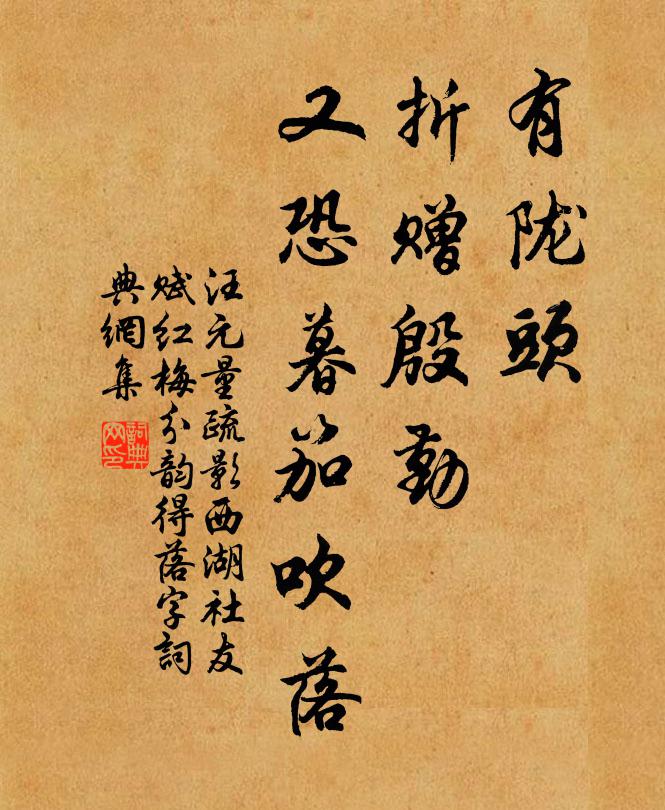 有陇頭
折赠殷勤
又恐暮笳吹落
汪元量疏影西湖社友
赋红梅分韵得落字詞
典網集
詞典网印